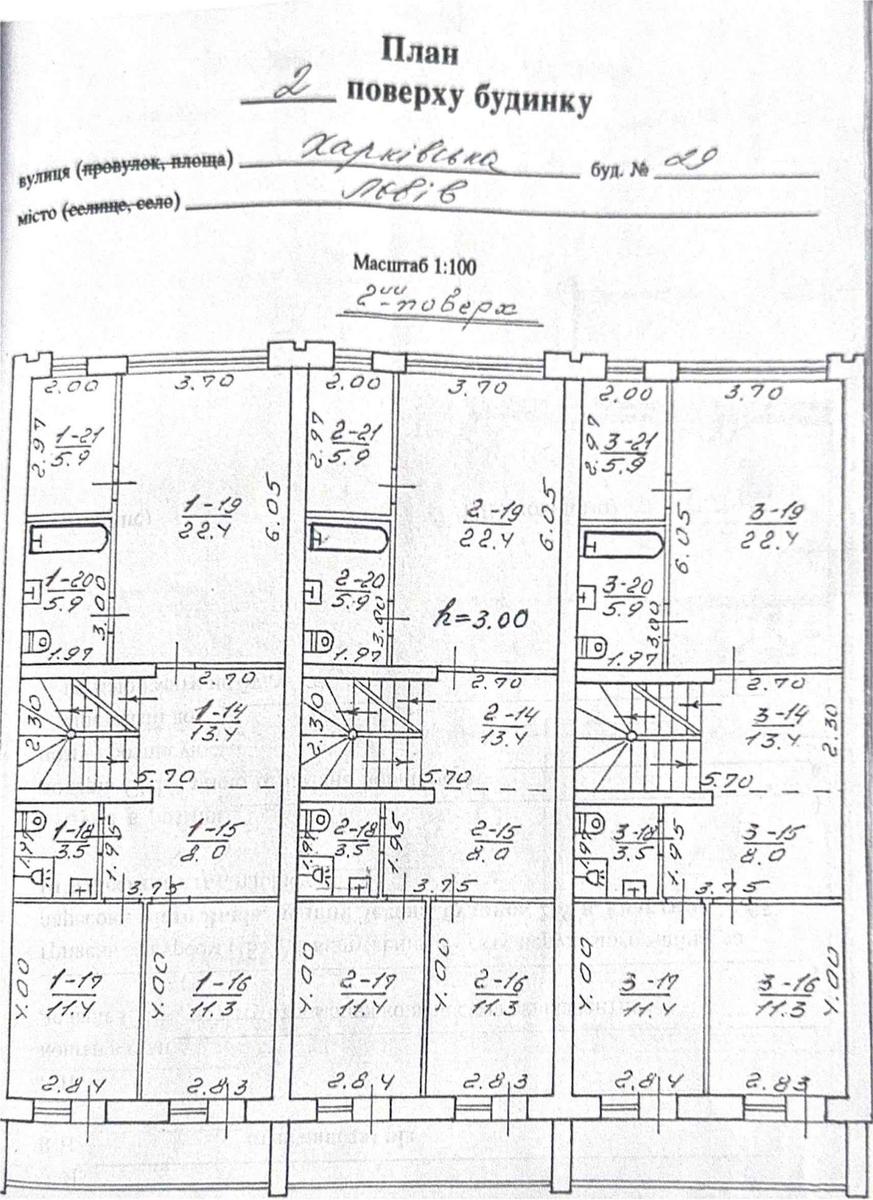 План
2 поверху будинку
вулиця (провулок, площа) Харківська буд. № 29
місто (селище, село) Львів
Масштаб 1:100
2ий поверх
2.00 3.70 2.00 3.70 2.00 3.70
2.97 1-21 5.9 2.97 2-21 5.9 2.97 3-21 5.9
1-19 22.4 6.05 2-19 22.4 6.05 6.05 3-19 22.4
1-20 5.9 3.00 2-20 5.9 3.00 h=3.00 3-20 5.9 3.00
1.97 1.97 1.97
2.70 2.70 2.70
2.30 1-14 13.4 2.30 2-14 13.4 3-14 13.4 2.30
5.70 5.70 5.70
1-18 3.5 1.95 1-15 8.0 2-18 3.5 1.95 2-15 8.0 3-18 3.5 1.95 3-15 8.0
3.75 3.75 3.75
4.00 1-17 11.4 4.00 1-16 11.3 4.00 2-17 11.4 4.00 2-16 11.3 4.00 3-17 11.4 3-16 11.3 4.00
2.84 2.83 2.84 2.83 2.84 2.83